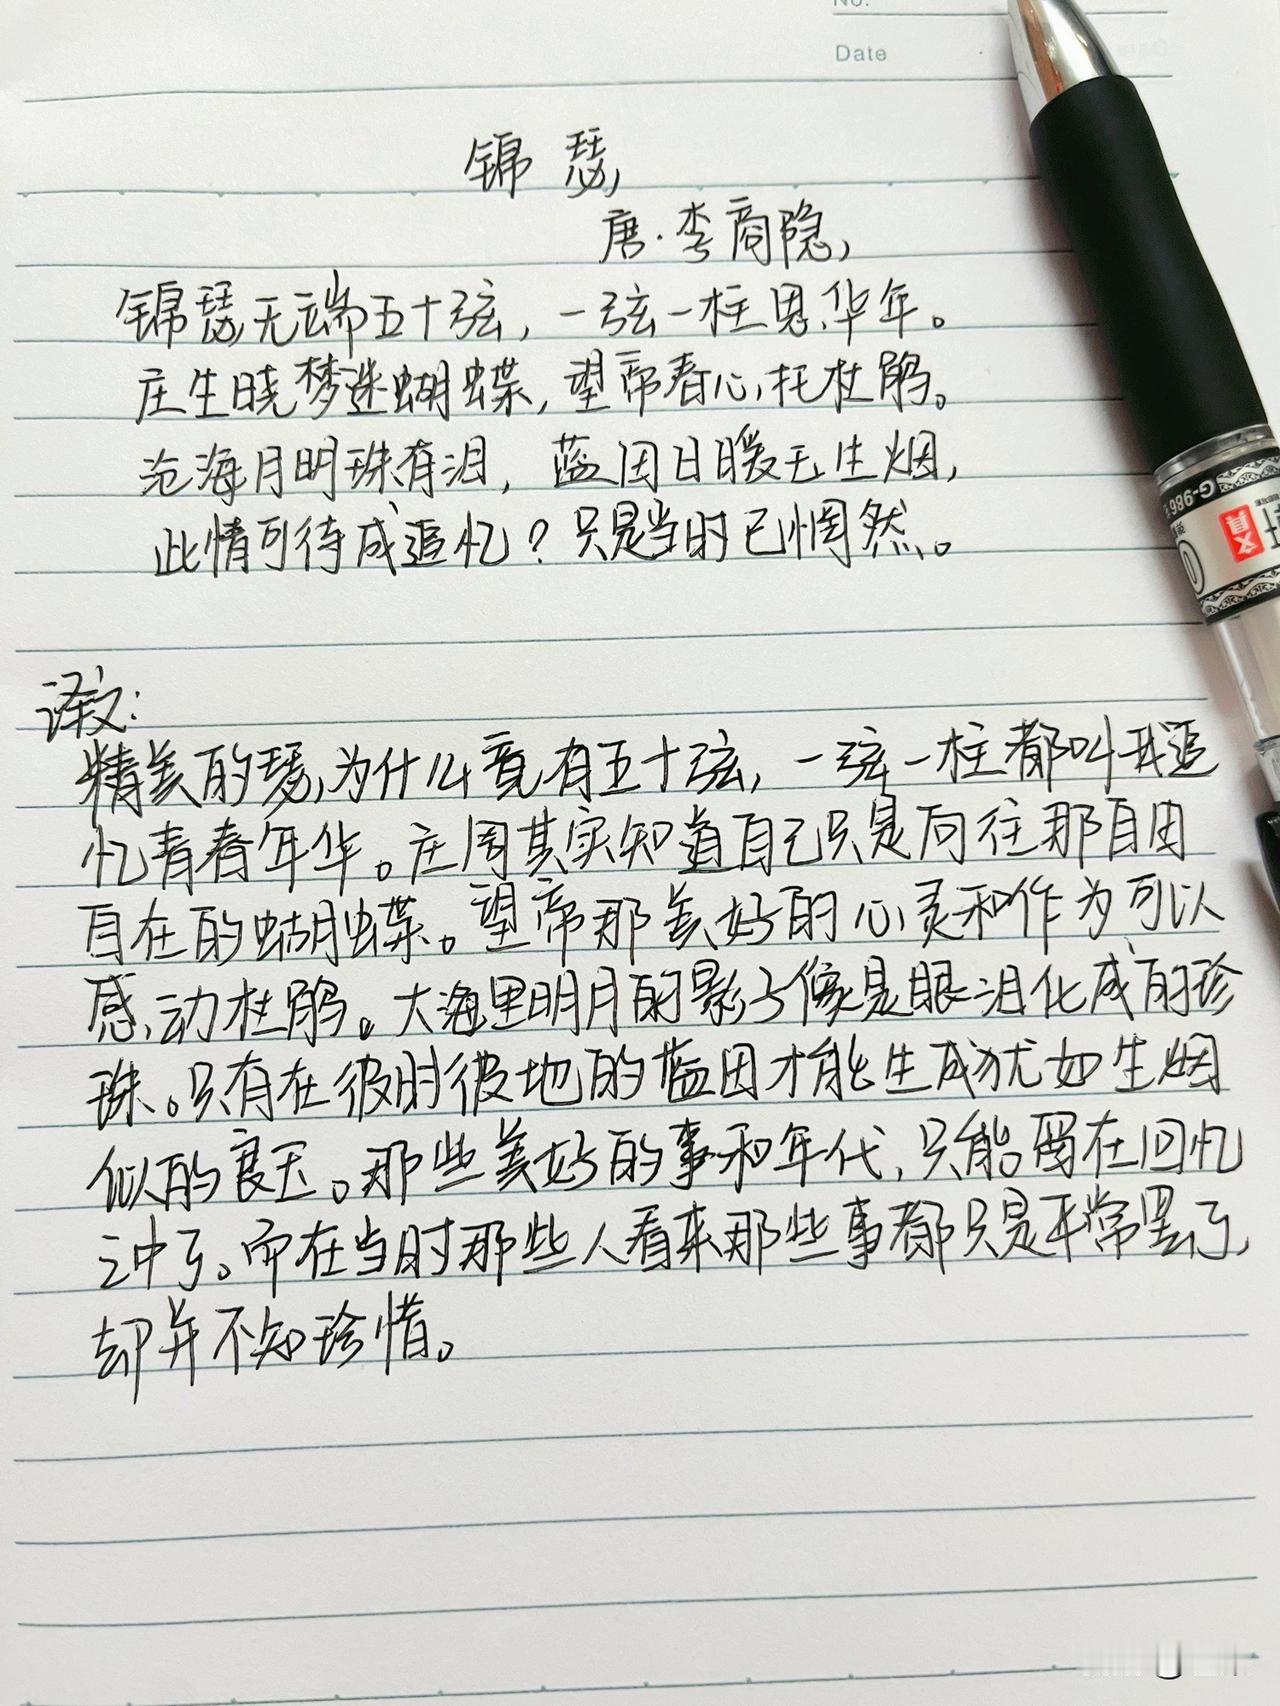 No.
Date
锦瑟
唐·李商隐
锦瑟无端五十弦，一弦一柱思华年。
庄生晓梦迷蝴蝶，望帝春心托杜鹃。
沧海月明珠有泪，蓝田日暖玉生烟，
此情可待成追忆？只是当时已惘然。
译文：
精美的瑟，为什么竟有五十弦，一弦一柱都叫我追
忆青春年华。庄周其实知道自己只是向往那自由
自在的蝴蝶。望帝那美好的心灵和作为可以
感动杜鹃。大海里明月的影子像是眼泪化成的珍
珠。只有在彼时彼地的蓝田才能生成犹如生烟
似的良玉。那些美好的事和年代，只能留在回忆
之中了。而在当时那些人看来那些事都只是平常罢了，
却并不知珍惜。
G-986
文